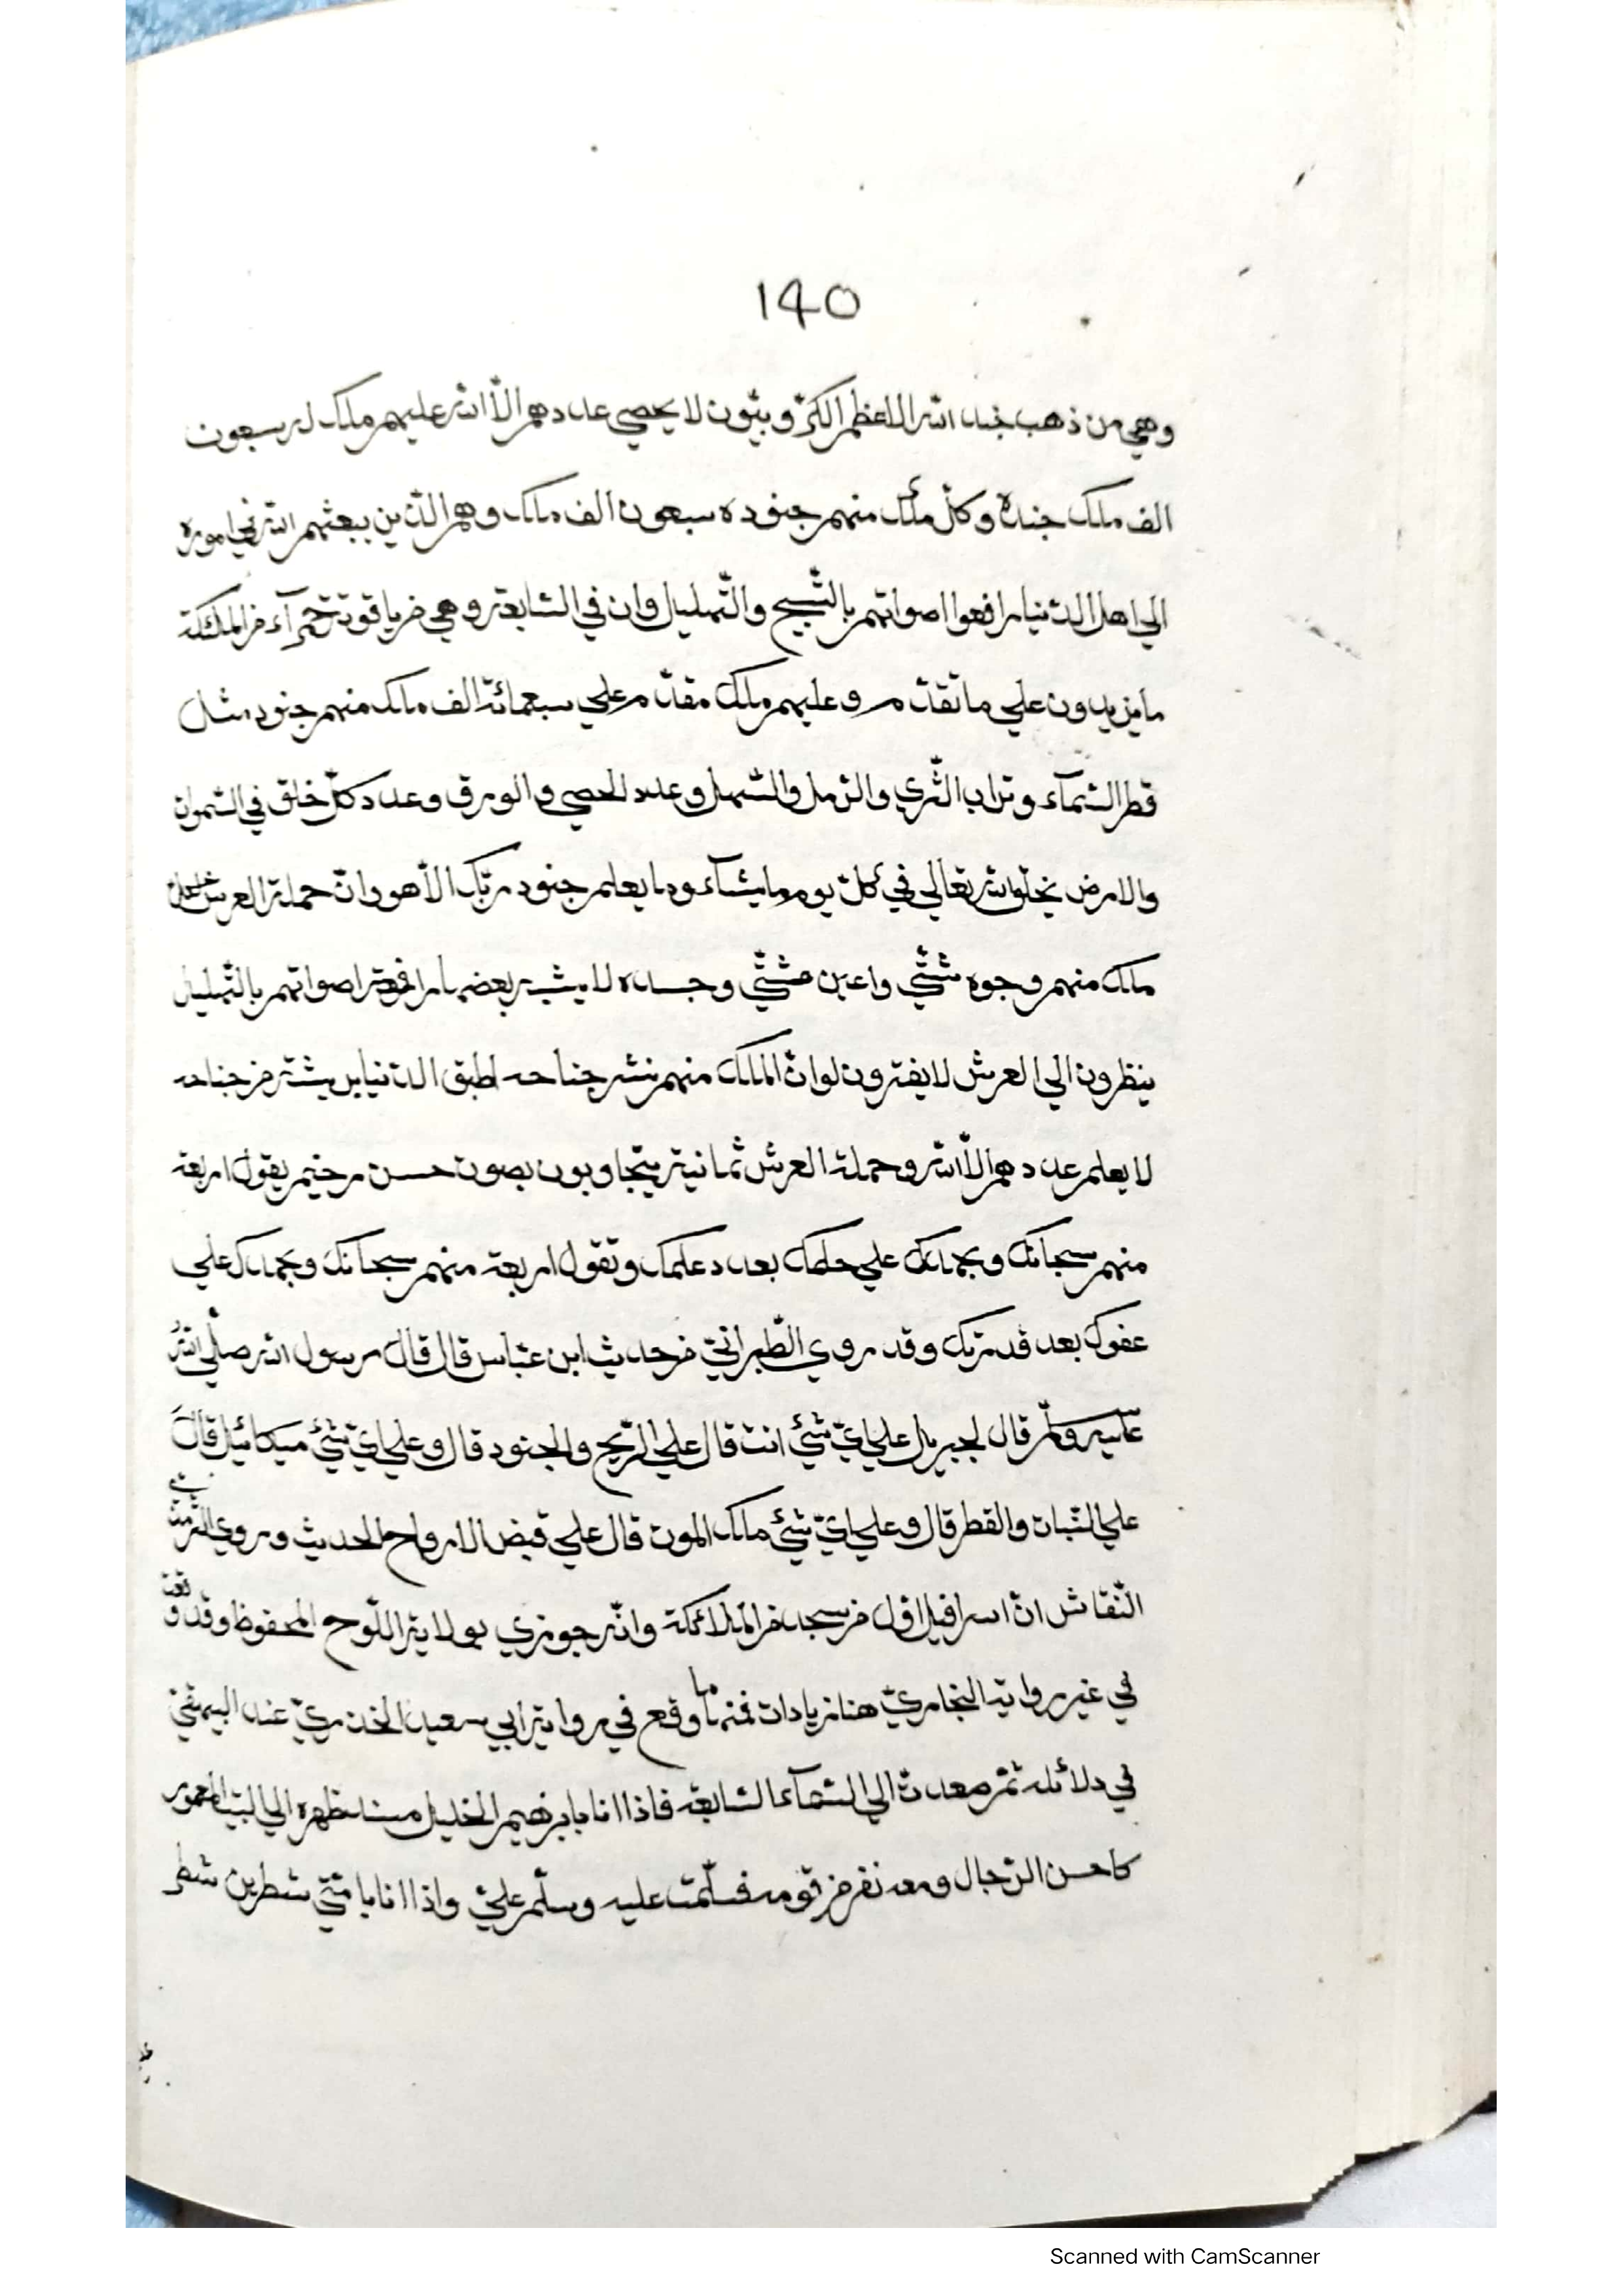 140
وهي من ذهب جند الله الاعظم الكر وبيّون لا يحصي عددهم الّا الله عليهم ملك له سبعون
الف ملك جنده وكلّ ملك منهم جنوده سبعون الف ملك وهم الّذين يبعثهم الله في اموره
الي اهل الدّنيا رافعوا اصواتهم بالتّسبيح والتّهليل وان في السّابعة وهي من ياقوتة حمرآء من الملئكة
ما يزيدون علي ما تقدّم وعليهم ملك مقدّم علي سبعمائة الف ملك منهم جنود مثل
قطر السّمآء وتراب الثّري والرّمل والسّهل وعدد الحصي والورق وعدد كلّ خلق في السّموات
والارض يخلق الله تعالي في كلّ يوم ما يشآء وما يعلم جنود ربّك الّا هو وانّ حملة العرش
ملك منهم وجوه شتّي واعين شتّي وجسده لا يشبه بعضها رافعة اصواتهم بالتّهليل
ينظرون الي العرش لا يفترون لو انّ الملك منهم نشر جناحه لطبق الدّنيا بريشة من جناحه
لا يعلم عددهم الّا الله وحملة العرش ثمانية يتجاوبون بصوت حسن رخيم يقول اربعة
منهم سبحانك وبحمدك علي حلمك بعد علمك وتقول اربعة منهم سبحانك وبحمدك علي
عفوك بعد قدرتك وقد روي الطّبرانيّ من حديث ابن عبّاس قال قال رسول الله صلّي الله
عليه وسلّم قال لجبريل علي ايّ شئ انت قال علي الرّيح والجنود قال وعلي ايّ شئ ميكائيل قال
علي النّبات والقطر قال وعلي ايّ شئ ملك الموت قال علي قبض الارواح الحديث وروي الترمذي
النّقاش انّ اسرافيل اوّل من سجد من الملائكة وانّه جوزي بولاية اللّوح المحفوظ وقد وقعت
في غير رواية البخاريّ هنا زيادات فمنها ما وقع في رواية ابي سعيد الخدريّ عند البيهقيّ
في دلائله ثمّ صعدت الي السّمآء السّابعة فاذا انا بابرهيم الخليل مسند ظهره الي البيت المعمور
كاحسن الرّجال ومعه نفر من قومه فسلّمت عليه وسلّم عليّ واذا انا بامّتي شطرين شطر
Scanned with CamScanner